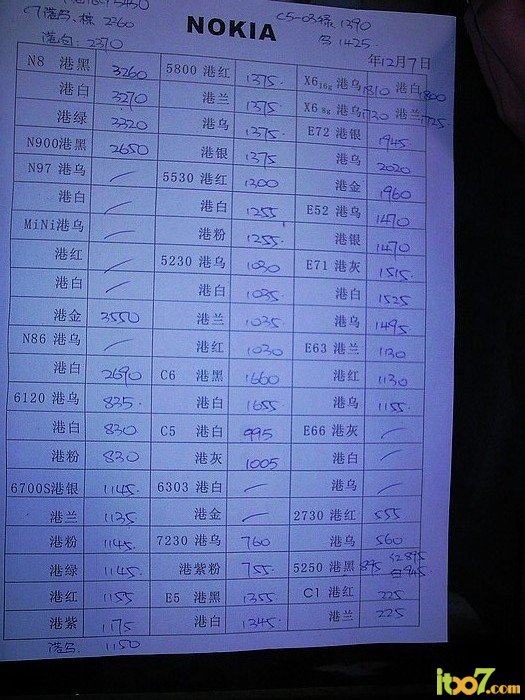 5450
C7港乌.棕 2360
港白: 2370
NOKIA
C5-03绿 1390
乌 1425
年12月7日
N8 港黑 3260 5800 港红 1375. X6 16g 港乌 1810 港白 1800
港白 3270 港兰 1375. X6 8g 港乌 1730 港兰 1725
港绿 3320 港乌 1375. E72 港银 1945.
N900港黑 2650 港银 1375 港乌 2020
N97 港乌 / 5530 港红 1200 港金 1960
港白 / 港白 1255 E52 港乌 1470
MiNi港乌 / 港粉 1255. 港银 1470
港红 / 5230 港乌 1030 E71 港灰 1515.
港白 / 港白 1035. 港白 1525
港金 3550 港兰 1035. 港乌 1495
N86 港乌 / 港红 1030 E63 港兰 1130
港白 2690 C6 港黑 1660 港红 1130
6120 港乌 835. 港白 1655 港乌 1155.
港白 830 C5 港白 995 E66 港灰 /
港粉 830 港灰 1005 港白 /
6700S港银 1145. 6303 港白 / 港乌 /
港兰 1135 港金 / 2730 港红 555
港粉 1145. 7230 港乌 760 港乌 560
港绿 1145 港紫粉 755. 5250 港黑 895 红895 白945
港红 1155 E5 港黑 1355 C1 港红 225
港紫 1175 港白 1345. 港兰 225
港乌. 1150
itbo7.com